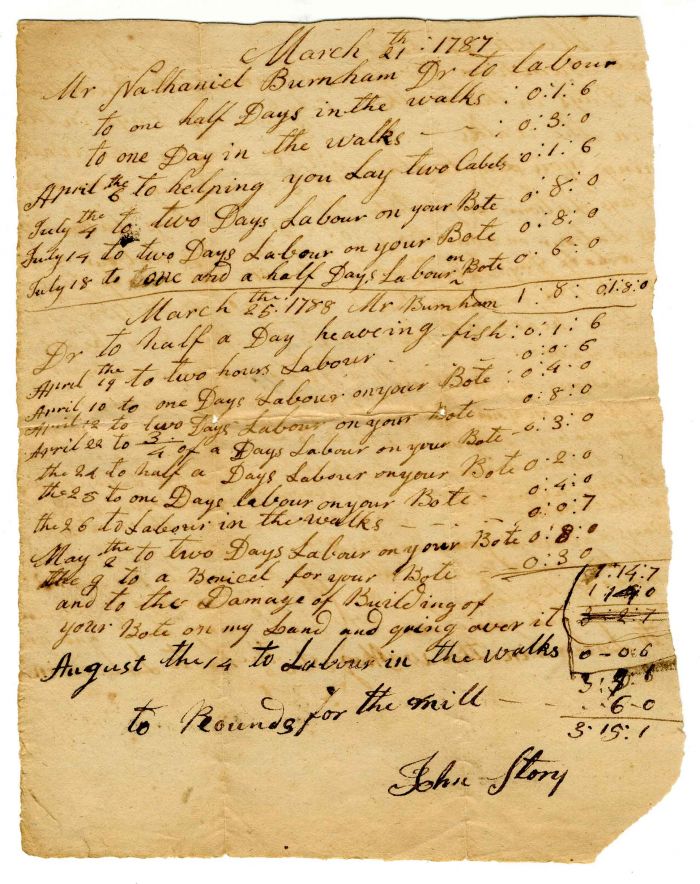 March 21th : 1787
Mr Nathaniel Burnham Dr to labour
to one half Days in the walks : 0:1:6
to one Day in the walks — : 0:3:0
April the 6 to helping you Lay two Cabels 0:1:6
July the 4 to two Days Labour on your Bote 0:8:0
July 14 to two Days Labour on your Bote 0:8:0
July 18 to one and a half Days Labour on Bote 0:6:0
1:8: 01:8:0
March the 25:1788 Mr Burnham
Dr to half a Day heaveing fish: 0:1:6
April the 19 to two hours Labour - - 0:0:6
April 10 to one Days Labour on your Bote : 0:4:0
April 12 to two Days Labour on your Bote 0:8:0
April 22 to 3/4 of a Days Labour on your Bote - 0:3:0
the 24 to half a Days Labour on your Bote 0:2:0
the 25 to one Days labour on your Bote - 0:4:0
the 26 to Labour in the walks - - - 0:0:7
May the 2 to two Days Labour on your Bote 0:8:0
the 9 to a for your Bote 0:3:0
1:14:7
and to the Damage of Building of
your Bote on my Land and going over it
3:2:7
August the 14 to Labour in the walks 0-0:6
to Rounds for the mill — - 6-0
3:15:1
John Story